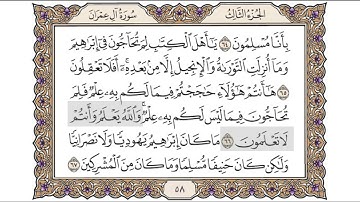 سُورَةُ آلِ عِمْرَانَ
الجُزْءُ الثَّالِثُ
بِأَنَّا مُسْلِمُونَ ٦٤ يَٰٓأَهْلَ ٱلْكِتَٰبِ لِمَ تُحَآجُّونَ فِىٓ إِبْرَٰهِيمَ
وَمَآ أُنزِلَتِ ٱلتَّوْرَىٰةُ وَٱلْإِنجِيلُ إِلَّا مِنۢ بَعْدِهِۦٓ ۚ أَفَلَا تَعْقِلُونَ
٦٥ هَٰٓأَنتُمْ هَٰٓؤُلَآءِ حَٰجَجْتُمْ فِيمَا لَكُم بِهِۦ عِلْمٌ فَلِمَ
تُحَآجُّونَ فِيمَا لَيْسَ لَكُم بِهِۦ عِلْمٌ ۚ وَٱللَّهُ يَعْلَمُ وَأَنتُمْ
لَا تَعْلَمُونَ ٦٦ مَا كَانَ إِبْرَٰهِيمُ يَهُودِيًّا وَلَا نَصْرَانِيًّا
وَلَٰكِن كَانَ حَنِيفًا مُّسْلِمًا وَمَا كَانَ مِنَ ٱلْمُشْرِكِينَ ٦٧
٥٨